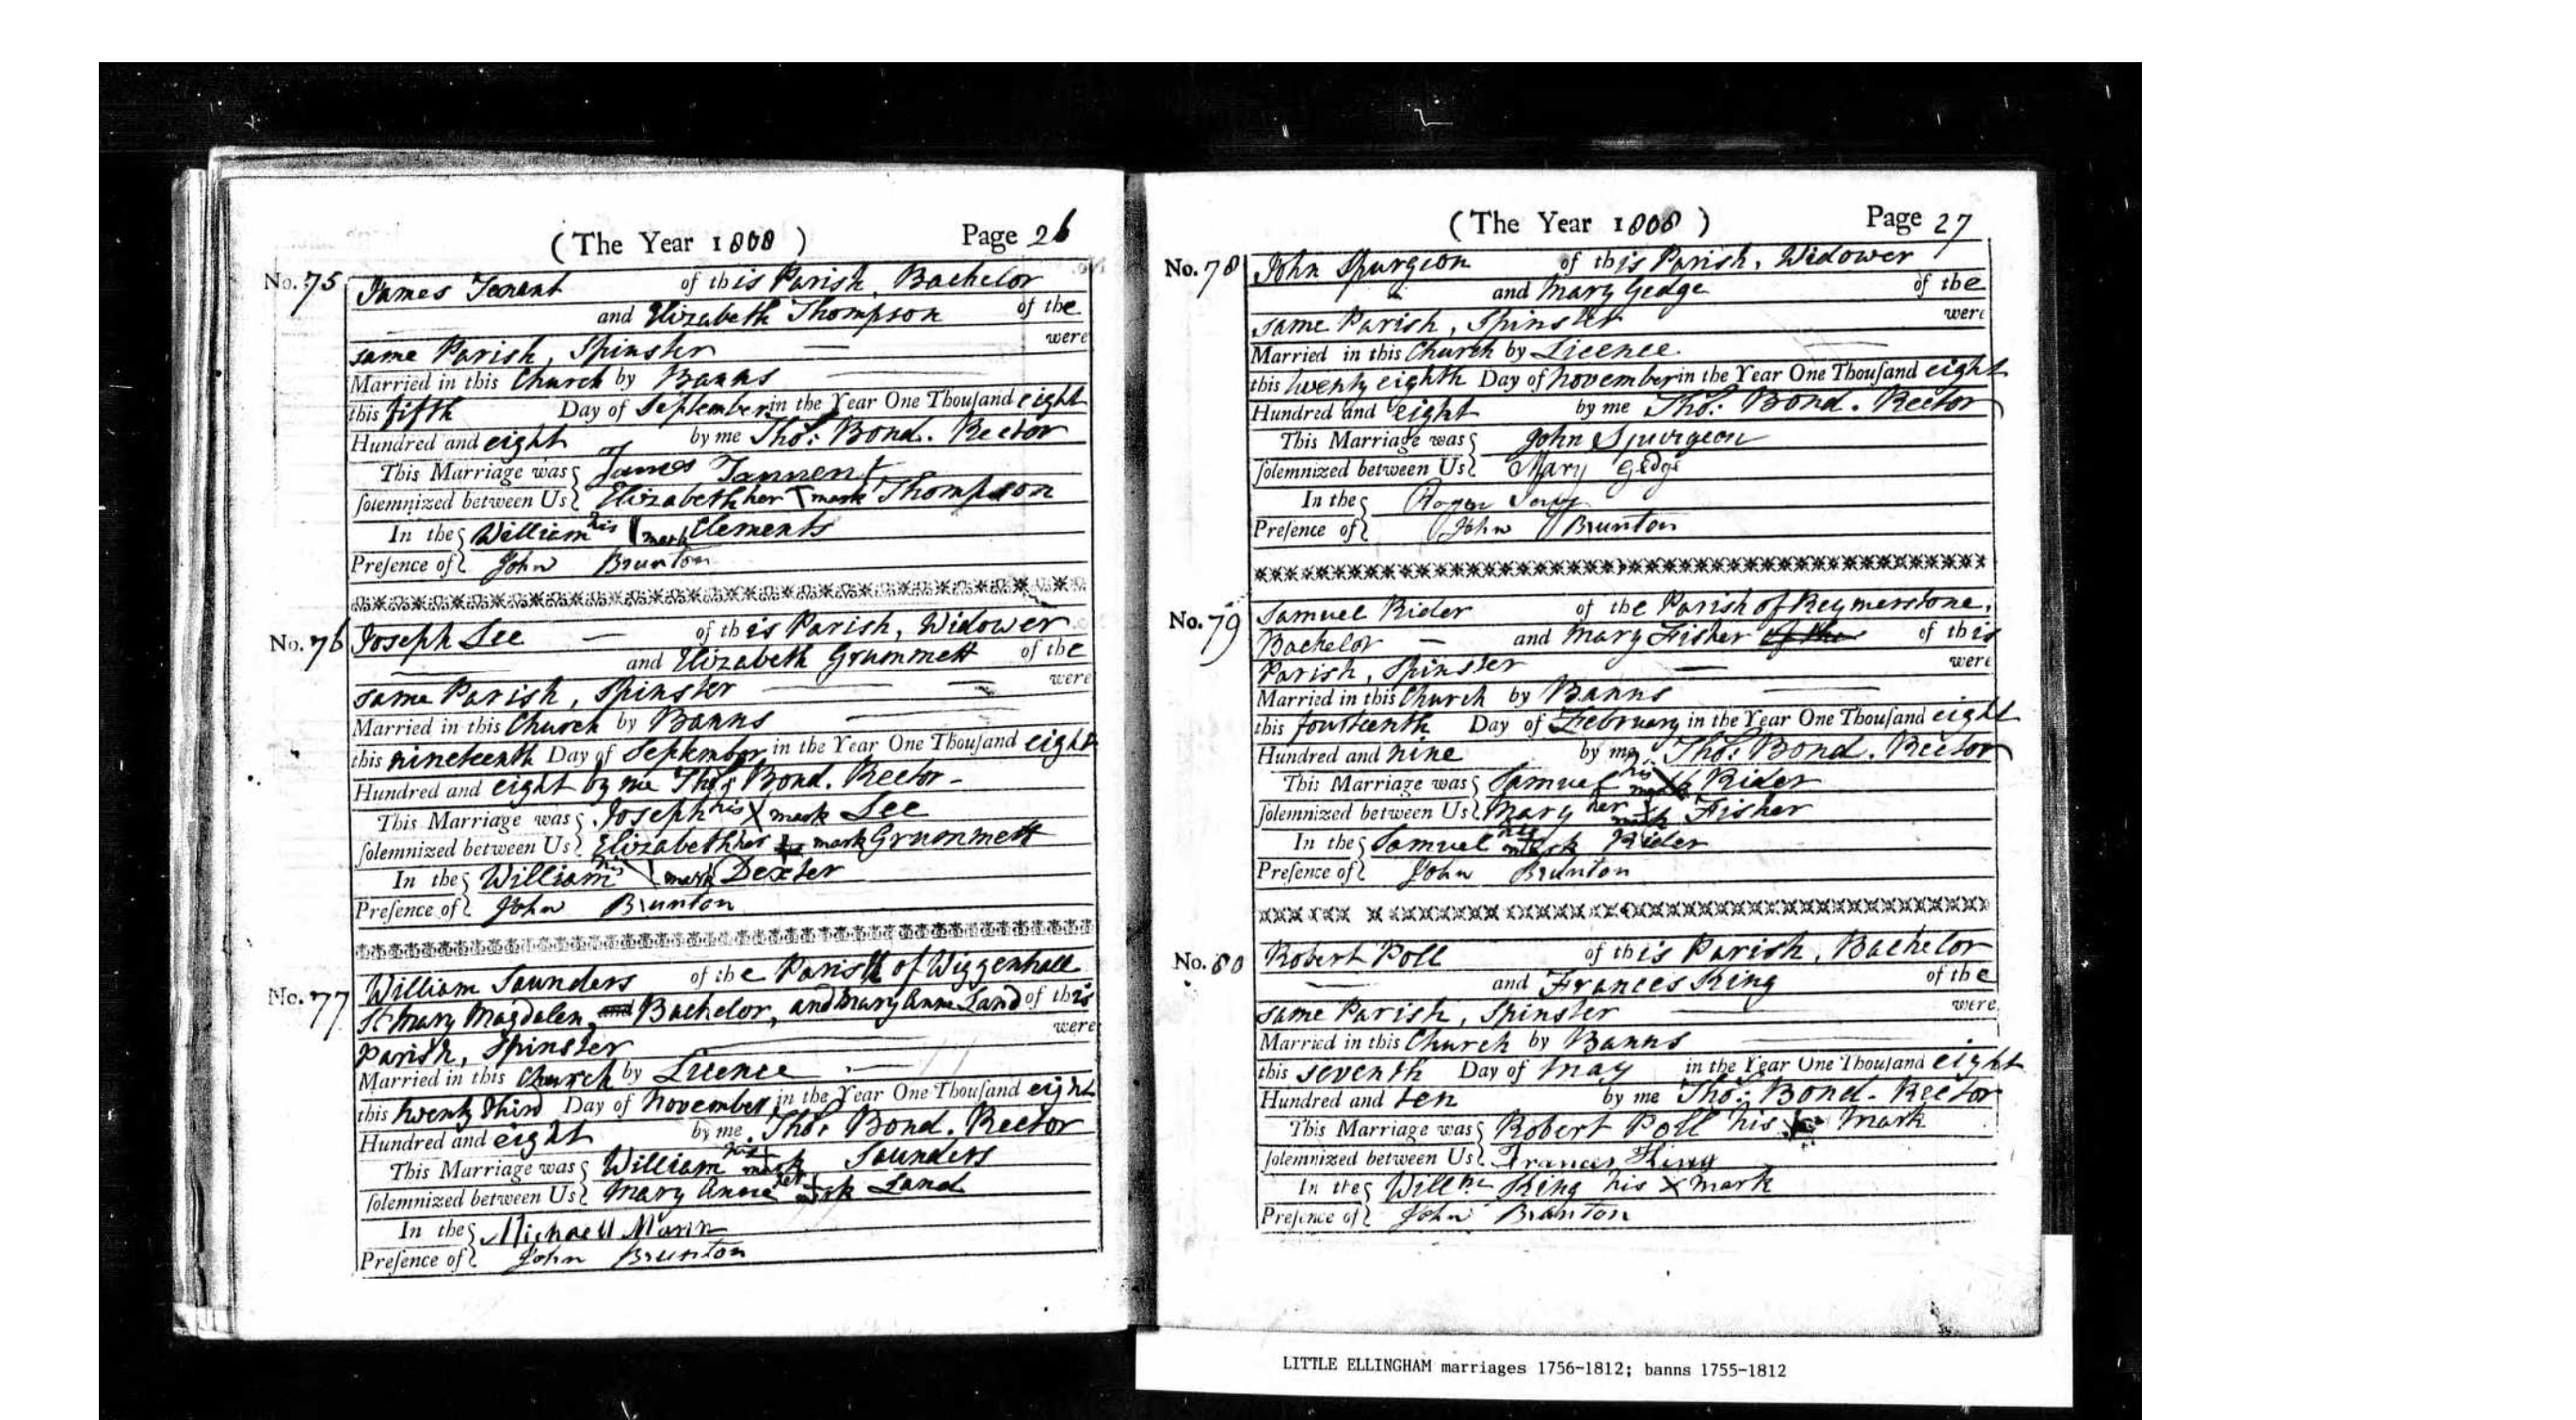 (The Year 1808) Page 26
No. 75 James Tenant of this Parish, Bachelor
and Elizabeth Thompson of the
same Parish, Spinster were
Married in this Church by Banns
this fifth Day of September in the Year One Thouſand eight
Hundred and eight by me Thos: Bond. Rector
This Marriage was James Tannent
ſolemnized between Us Elizabeth her mark Thompson
In the William his mark Clements
Preſence of John Brunton
No. 76 Joseph Lee of this Parish, Widower
and Elizabeth Grummett of the
same Parish, Spinster were
Married in this Church by Banns
this nineteenth Day of September in the Year One Thouſand eight
Hundred and eight by me Thos Bond. Rector
This Marriage was Joseph his X mark Lee
ſolemnized between Us Elizabeth her mark Grummett
In the William his mark Dexter
Preſence of John Brunton
No. 77 William Saunders of the Parish of Wiggenhall
St Mary Magdalen, and Bachelor, and Mary Anne Land of this
Parish, Spinster were
Married in this Church by Licence
this twenty third Day of November in the Year One Thouſand eight
Hundred and eight by me Thos Bond. Rector
This Marriage was William his mark Saunders
ſolemnized between Us Mary Anne her mark Land
In the Michaell Mann
Preſence of John Brunton
(The Year 1808) Page 27
No. 78 John Spurgeon of this Parish, Widower
and Mary Gedge of the
same Parish, Spinster were
Married in this Church by Licence
this twenty eighth Day of November in the Year One Thouſand eight
Hundred and eight by me Thos: Bond. Rector
This Marriage was John Spurgeon
ſolemnized between Us Mary Gedge
In the Roger
Preſence of John Brunton
No. 79 Samuel Rider of the Parish of Reymerstone,
Bachelor and Mary Fisher of the of this
Parish, Spinster were
Married in this Church by Banns
this fourteenth Day of February in the Year One Thouſand eight
Hundred and nine by me Thos: Bond. Rector
This Marriage was Samuel his mark Rider
ſolemnized between Us Mary her mark Fisher
In the Samuel his mark Rider
Preſence of John Brunton
No. 80 Robert Poll of this Parish, Bachelor
and Frances King of the
same Parish, Spinster were
Married in this Church by Banns
this seventh Day of May in the Year One Thouſand eight
Hundred and ten by me Thos: Bond. Rector
This Marriage was Robert Poll his mark
ſolemnized between Us Frances King
In the Willm King his X mark
Preſence of John Brunton
LITTLE ELLINGHAM marriages 1756-1812; banns 1755-1812